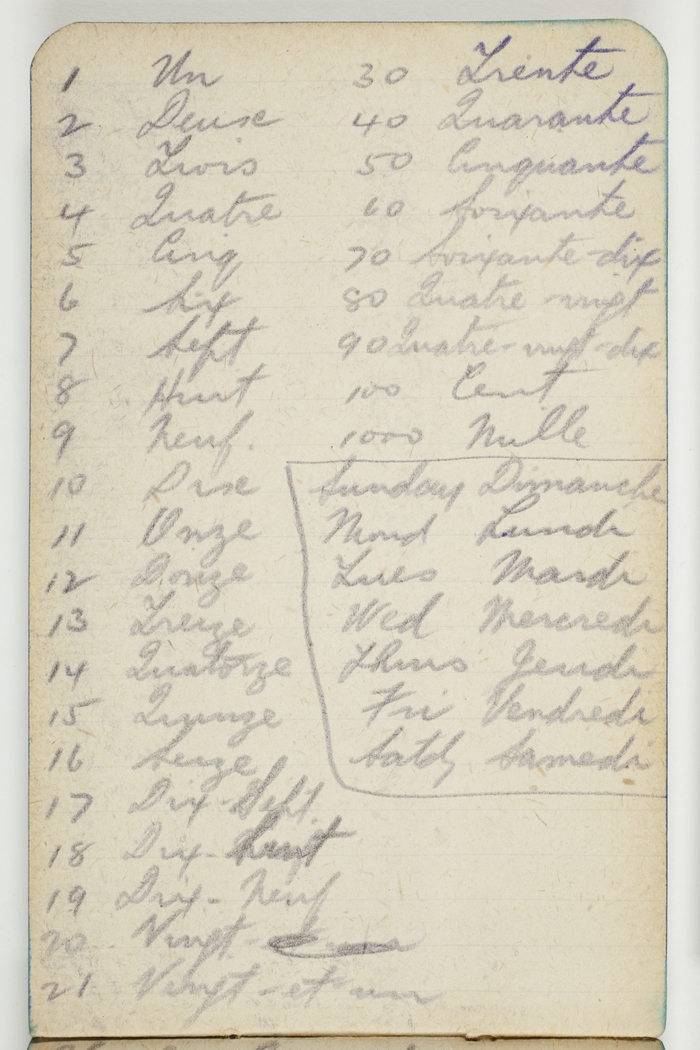 1 Un
2 Deux
3 Trois
4 Quatre
5 Cinq
6 Six
7 Sept
8 Huit
9 Neuf.
10 Dix
11 Onze
12 Douze
13 Treize
14 Quatorze
15 Quinze
16 Seize
17 Dix-Sept
18 Dix-huit
19 Dix-Neuf
20 Vingt
21 Vingt-et un
30 Trente
40 Quarante
50 Cinquante
60 Soixante
70 Soixante-dix
80 Quatre-vingt
90 Quatre-vingt-dix
100 Cent
1000 Mille
Sunday Dimanche
Mond Lundi
Tues Mardi
Wed Mercredi
Thurs Jeudi
Fri Vendredi
Satdy Samedi